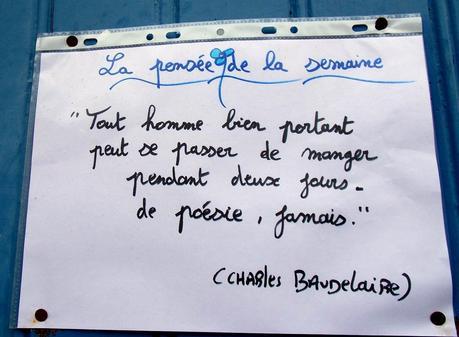 La pensée de la semaine
"Tout homme bien portant
peut se passer de manger
pendant deux jours_
de poésie, jamais."
(CHARLES BAUDELAIRE)